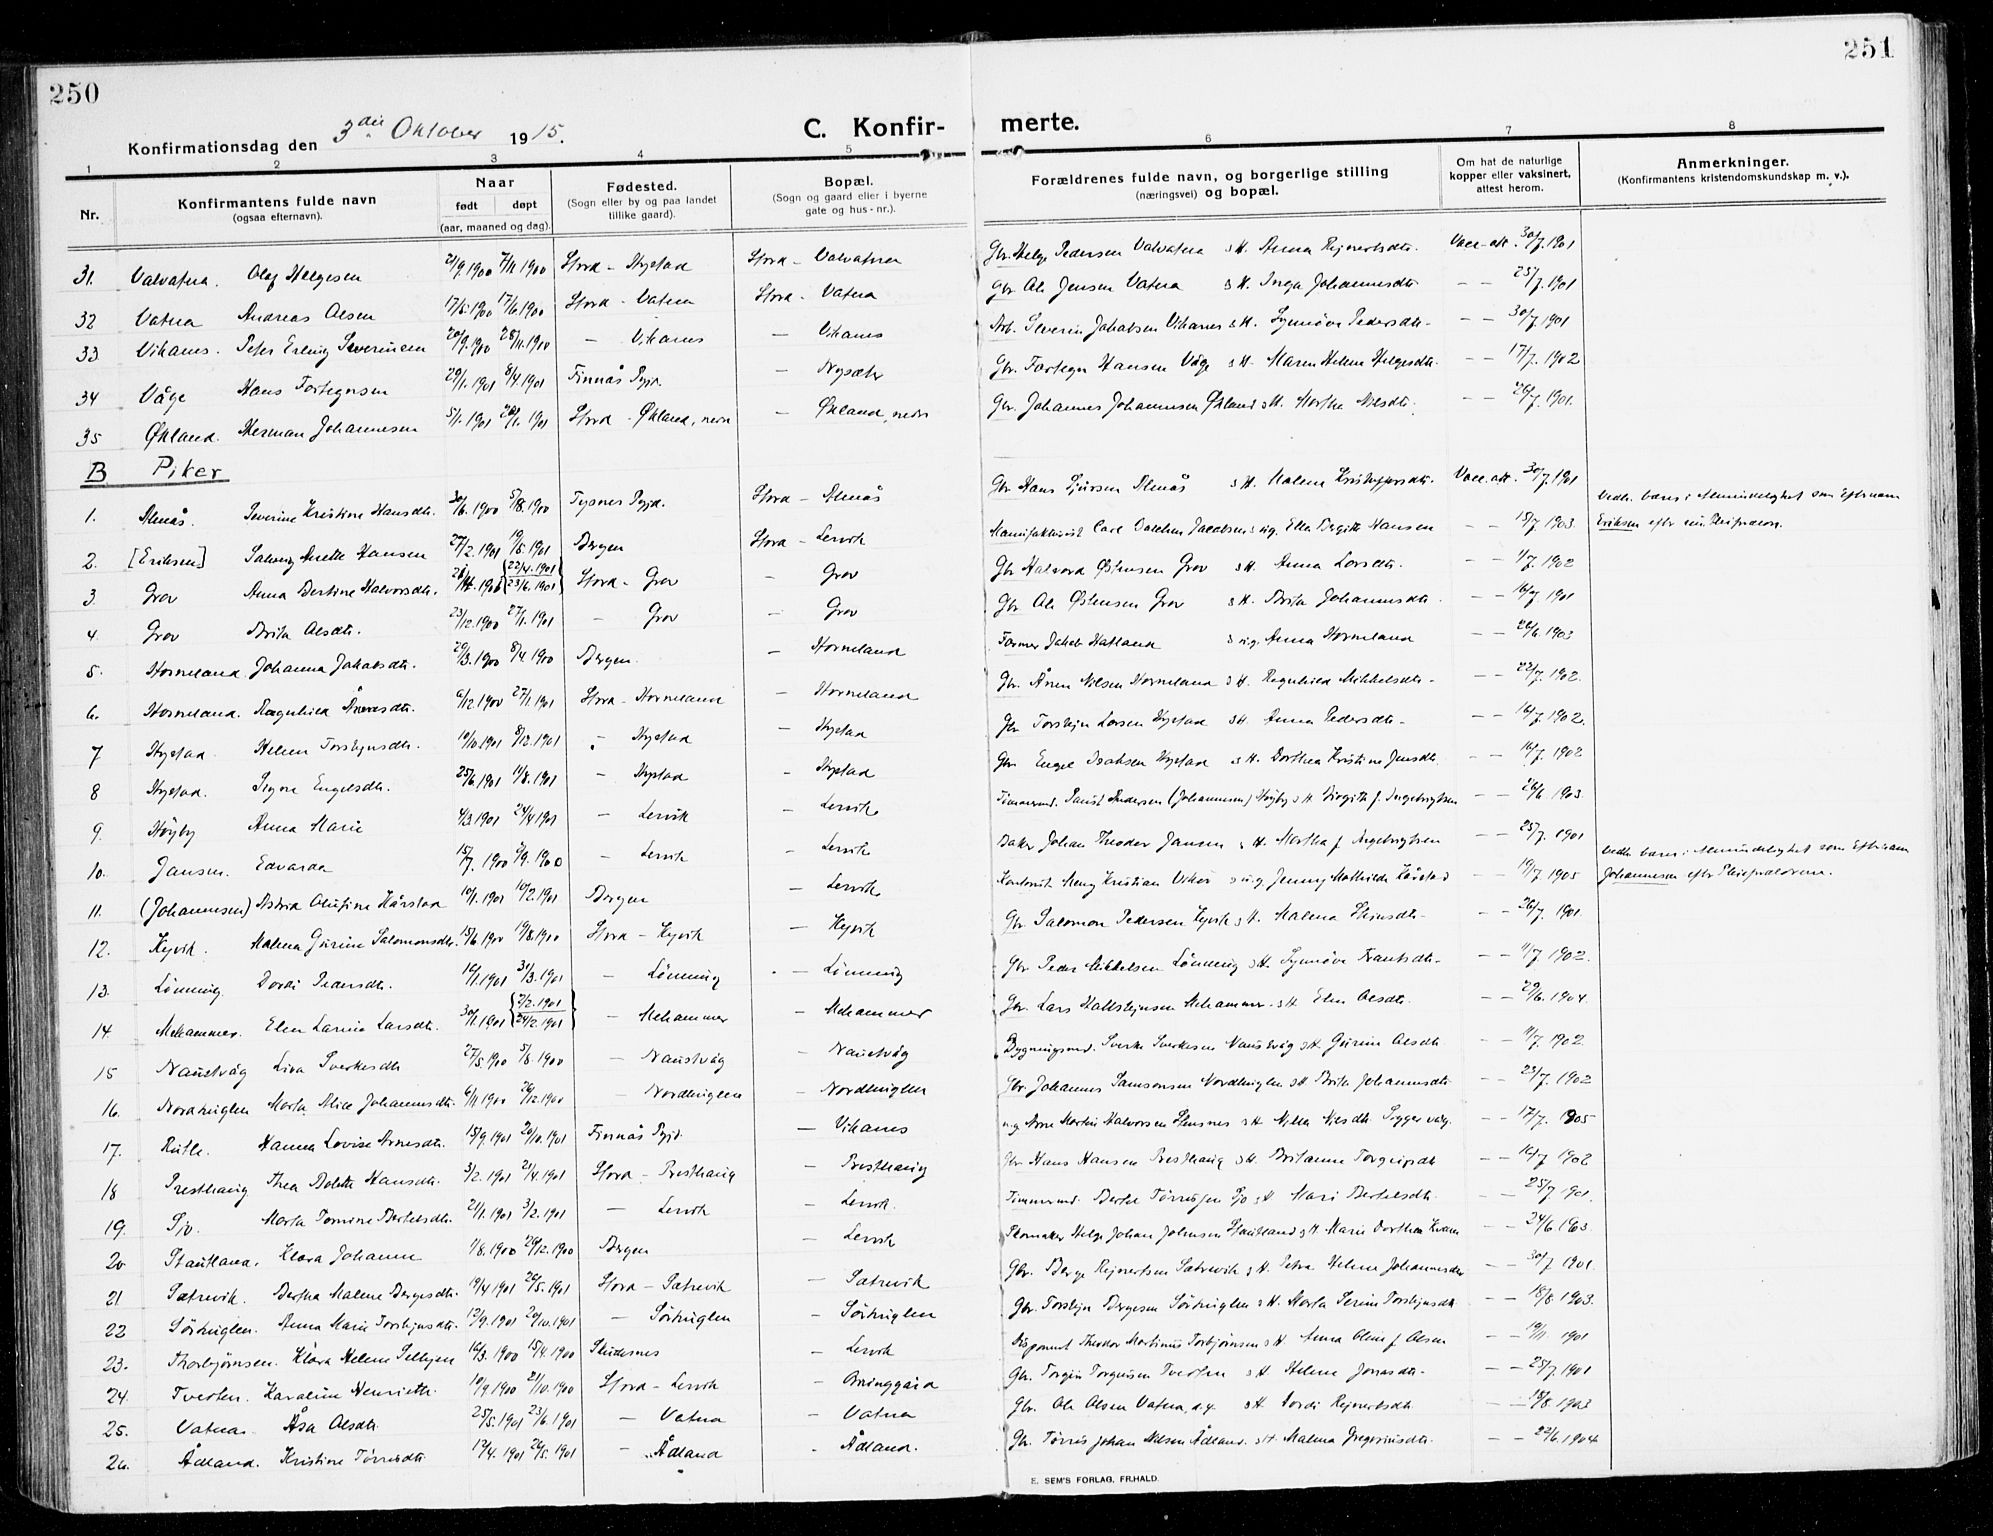 250
251
Konfirmationsdag den 3die Oktober 1915.
C. Konfir-
merte.
1 2 3 4 5 6 7 8
Nr.
Konfirmantens fulde navn
(ogsaa efternavn).
Naar
født døpt
(aar, maaned og dag).
Fødested.
(Sogn eller by og paa landet
tillike gaard).
Bopæl.
(Sogn og gaard eller i byerne
gate og hus-nr.).
Forældrenes fulde navn, og borgerlige stilling
(næringsvei) og bopæl.
Om hat de naturlige
kopper eller vaksinert,
attest herom.
Anmerkninger.
(Konfirmantens kristendomskundskap m. v.).
31. Valvatna. Olaf Helgesen 21/9.1900 7/11 1900 Stord - Hystad Stord - Valvatna Gbr. Helge Pedersen Valvatna s H. Anna Rejnertsdtr. Vacc. att. 30/7.1901
32 Vatna Andreas Olsen 17/5.1900 17/6.1900 Stord - Vatna Stord - Vatna Gbr. Ole Jensen Vatna s H. Inga Johannesdtr - - 25/7.1901
33 Vikanes. Peter Erling Severinsen 20/9.1900 25/11.1900 - Vikanes - Vikanes Arb. Severin Jakobsen Vikanes s H. Synnøve Pedersdtr - - 30/7.1901
34 Våge Hans Tortegnsen 29/1.1901 8/4.1901 Finnås Pgjd. - Nysæter Gbr. Tortegn Hansen Våge s H. Maren Helene Helgesdtr. - - 17/7.1902
35 Økland. Herman Johannesen 5/1.1901 20/1.1901 Stord - Økland, nedre - Økland, nedre Gbr. Johannes Johannesen Økland s H. Martha Nilsdtr. - - 26/7.1901.
B Piker
1. Almås. Severine Kristine Hansdtr. 30/6.1900 5/8.1900 Tysnes Pgjd. Stord - Almås Gbr. Hans Sjursen Almås s H. Malene Kristoffersdtr. Vacc. att. 30/7.1901
2. [Eriksen] Solveig Anette Hansen 27/2.1901 19/5.1901 Bergen Stord - Lervik Manufakturist Carl Jacobsen s ug. Ella Birgitte Hansen - - 15/7.1903. Vedk. bærer i Almindelighet som Efternavn
Eriksen efter sin Pleiefader.
3. Grov Anna Bertine Halvorsdtr. {22/4.1901 23/6.1901} Stord - Grov - Grov Gbr Halvord Østensen Grov s H. Anna Larsdtr. - - 1/7.1902
4. Grov Brita Olsdtr. 23/12.1900 27/1.1901 - Grov - Grov Gbr. Ole Østensen Grov s H. Brita Johannesdtr. - - 16/7.1901
5. Horneland. Johanna Jakobsdtr. 29/3.1900 8/4.1900 Bergen. - Horneland Former Jakob Hatland s ug. Anna Horneland - - 26/6.1903
6. Horneland. Ragnhild Ånensdtr. 6/12.1900 27/1.1901 Stord - Horneland - Horneland Gbr. Ånen Nilsen Horneland s H. Ragnhild Mikkelsdtr - - - 22/7.1902.
7 Hystad. Helene Torsteinsdtr. 10/10.1901 8/12.1901 - Hystad - Hystad Gbr Larsen Hystad s H. Anna Pedersdtr - - - 16/7.1902.
8 Hystad. Signe Engelsdtr. 25/6.1901 11/8.1901 - Hystad - Hystad Gbr. Engel Isaksen Hystad s H. Dorthea Kristine Jensdtr. - - 16/7.1902
9. Høyby Anna Marie 4/3.1901 24/4.1901 - Lervik - Lervik Tømmermd. Andersen (Johannesen) Høyby s H. Birgitte f. Ingebrigtsen - - 26/6.1903.
10. Jansen. Edvarda 15/7.1900 2/9.1900 - Lervik - Lervik Baker Johan Theodor Jansen s H. Martha f. Ingebrigtsen - - 25/7.1901
11. (Johannesen) Astrid Olufine Hårstad 10/1.1901 10/2.1901 Bergen - Lervik Kontorist Kristian s ug. Jenny Mathilde Hårstad - - 19/7.1905 Vedk. bærer i Almindelighet som Efternavn
Johannesen efter Pleieforældrene.
12. Kyvik. Malena Gurine Salomonsdtr. 15/6.1900 19/8.1900 Stord - Kyvik - Kyvik Gbr. Salomon Pedersen Kyvik s H. Malena - - 26/7.1901.
13. Lønning. Dordi Pedersdtr. 16/1.1901 31/3.1901 - Lønning - Lønning Gbr. Peder Mikkelsen Lønning s H. Synnøve - - 11/7.1902.
14. Mehammer. Elen Larine Larsdtr. 30/1.1901 {3/2.1901 24/2.1901} - Mehammer - Mehammer Gbr. Lars Mehammer s H. Elen Olsdtr. - - 29/6.1904.
15 Naustvåg Liva Sverkesdtr 27/5.1900 5/8.1900 - Naustvåg - Naustvåg Bygningsmd. Sverke Sverkesen Naustvåg s H. Gurine Olsdtr. - - 11/7.1902
16. Nordhuglen Marta Alice Johannesdtr. 6/11 1900 26/12.1900 - Nordhuglen - Nordhuglen Gbr. Johannes Samsonsen Nordhuglen s H. Brita Johannesdtr - - 23/7.1902
17. Rutle. Hanna Lovise Arnesdtr. 15/9.1901 20/10.1901 Finnås Pgjd. - Vikanes ug Arne Martin Halvorsen s H. Nilsdtr - - 17/7.1905
18 Presthaug Thea Bolette Hansdtr. 3/2.1901 21/4.1901 Stord - Presthaug - Presthaug Gbr Hans Hansen Presthaug s H. Britanne Torgeirsdtr - - 16/7 1902
19. Sjo. Marta Tomine Bertelsdtr. 21/1.1901 3/2.1901 - Lervik - Lervik. Tømmermd. Bertel Sjo s H. Mari Bertelsdtr. - - 25/7 1901.
20 Stautland. Klara Johanne 1/8.1900 26/12.1900 Bergen - Lervik Skomaker Helge Johan Johnsen Stautland s H Marie Dorthea - - 24/6.1903.
21 Sætrevik. Bertha Malene Bergesdtr. 19/4 1901 26/5.1901 Stord - Sætrevik - Sætrevik Gbr. Berge Rejnertsen Sætrevik s H. Petra Helene Johannesdtr - - 30/7 1901.
22 Sørhuglen. Anna Marie 12/9.1901 20/10.1901 - Sørhuglen - Sørhuglen Gbr. Bergesen Sørhuglen s H. Marta Serine - - 18/8 1903.
23. Thorbjørnsen. Klara Helene 16/3.1900 15/4.1900 Skudesnes - Lervik Disponent Theodor Martinus Torbjørnsen s H Anna Oline f. Olsen - - 19/11.1901
24. Tveiten. Karoline Henriette 10/9.1900 21/10.1900 Stord - Lervik - Orninggård Gbr. Torgeir Torgeirsen Tveiten s H. Helene Jonasdtr - - - 25/7 1901
25. Vatna. Åsa Olsdtr. 25/5.1901 23/6.1901 - Vatna - Vatna Gbr. Ole Olsen Vatna, d.y. s H. Dordi Rejnertsdtr - - 18/8 1903
26. Ådland. Kristine Tørresdtr 17/4.1901 26/5.1901 - Ådland - Ådland. Gbr. Tørris Johan Nilsen Ådland. s H. Malena Gregeriusdtr - - 22/6.1904
E. SEM'S FORLAG, FR.HALD.